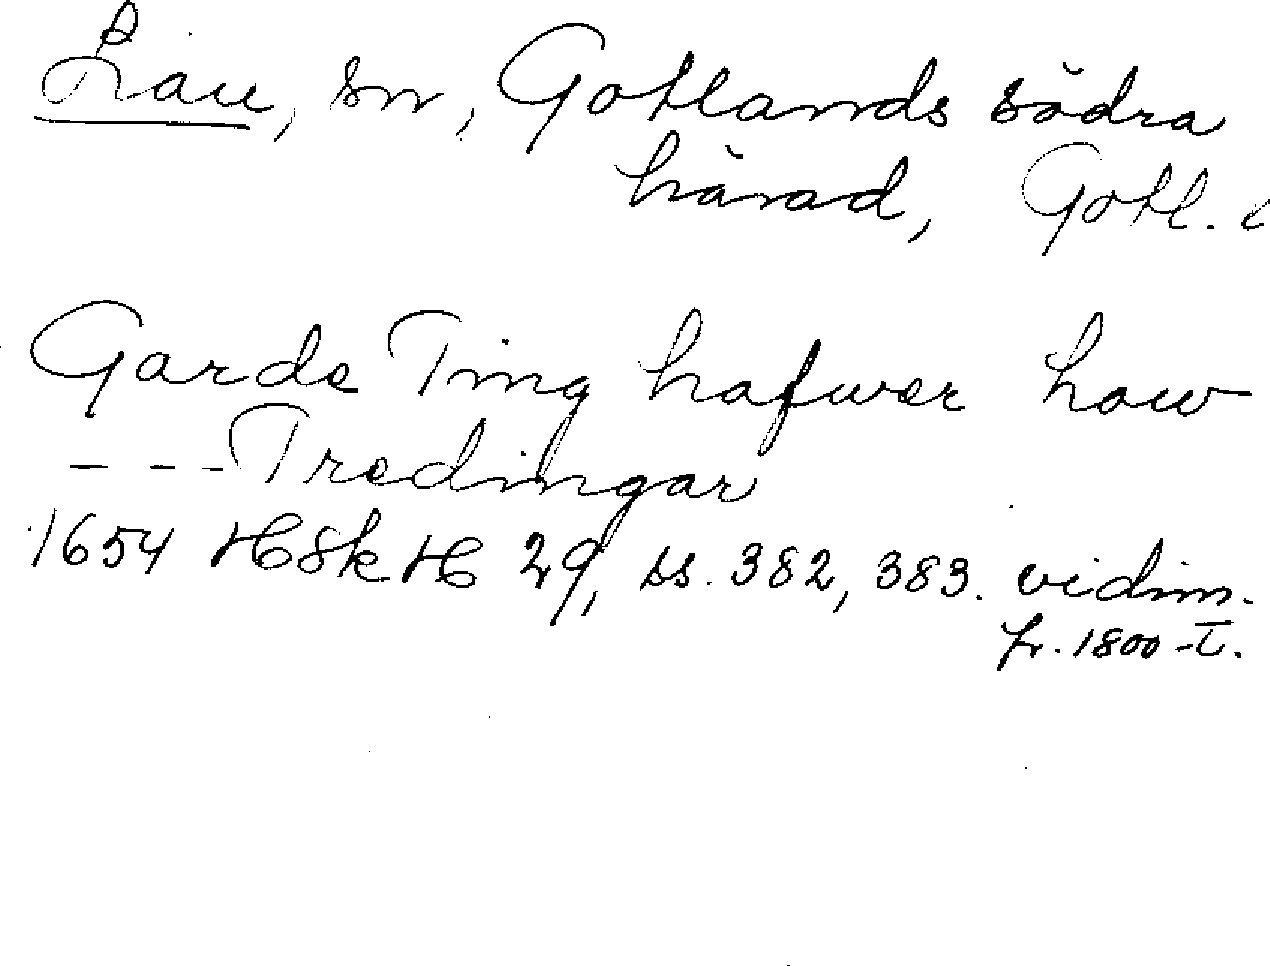 Lau, sn, Gotlands södra
härad, Gotl.
Garde Ting hafwer how
- - - Tredingar
1654 HSkH 29, ss. 382, 383. vidim.
fr. 1800-t.